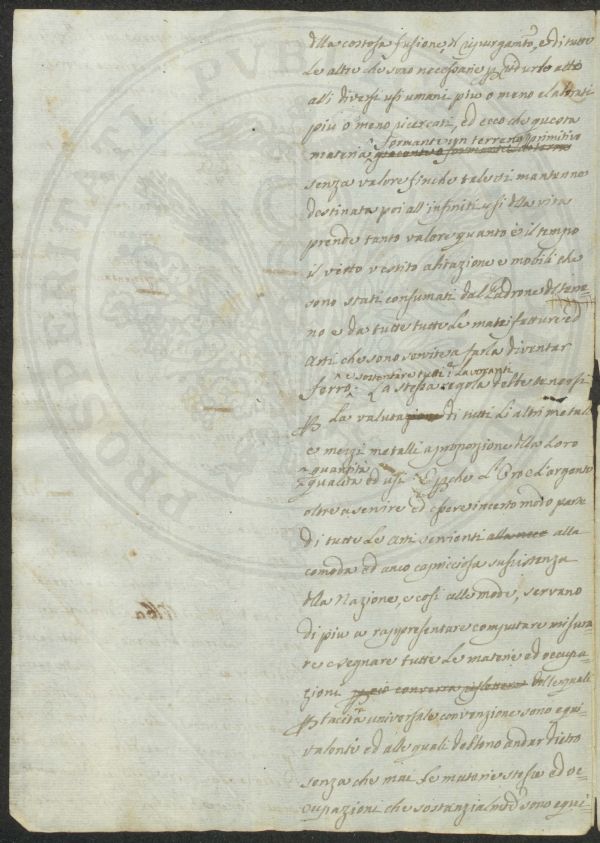 dlla costosa fusione, d ripurgamto, e di tutte
le altre che sono necessarie p redurlo atto
alli diversi usi umani piu o meno elaborati
piu o meno ricercati, ed ecco che questa
formante un terreno primitivo
materia giacente o formante interno
senza valore finche tale si mantenne
destinata poi all'infiniti usi dlla vita
prende tanto valore quanto è il tempo
il vitto vestito abitazione e mobili che
sono stati consumati dal Padrone di terre=
no e da tutte tutte le manifatture ed
Arti che sono servite a farla diventar
e sostentare tutti i lavoranti
ferro. La stessa regola debbe tenersi
p la valutazione di tutti li altri metalli
e mezzi metalli a proporzione dlla loro
quantità
qualità ed usi. E pche l'Oro e l'argento
oltre a servire ed essere in certo modo parte
di tutte le Arti servienti alla alla
comoda ed anco capricciosa sussistenza
dlla Nazione, e cosi alle mode, servano
di piu a rappresentare computare misura=
re e segnare tutte le materie ed occupa=
zioni dlle quali
p tacita universale convenzione sono equi=
valenti ed alle quali debbono andar dietro
senza che mai le materie stesse ed oc=
cupazioni che sostanzialmte sono equi=
PROSPERITATI PVBL